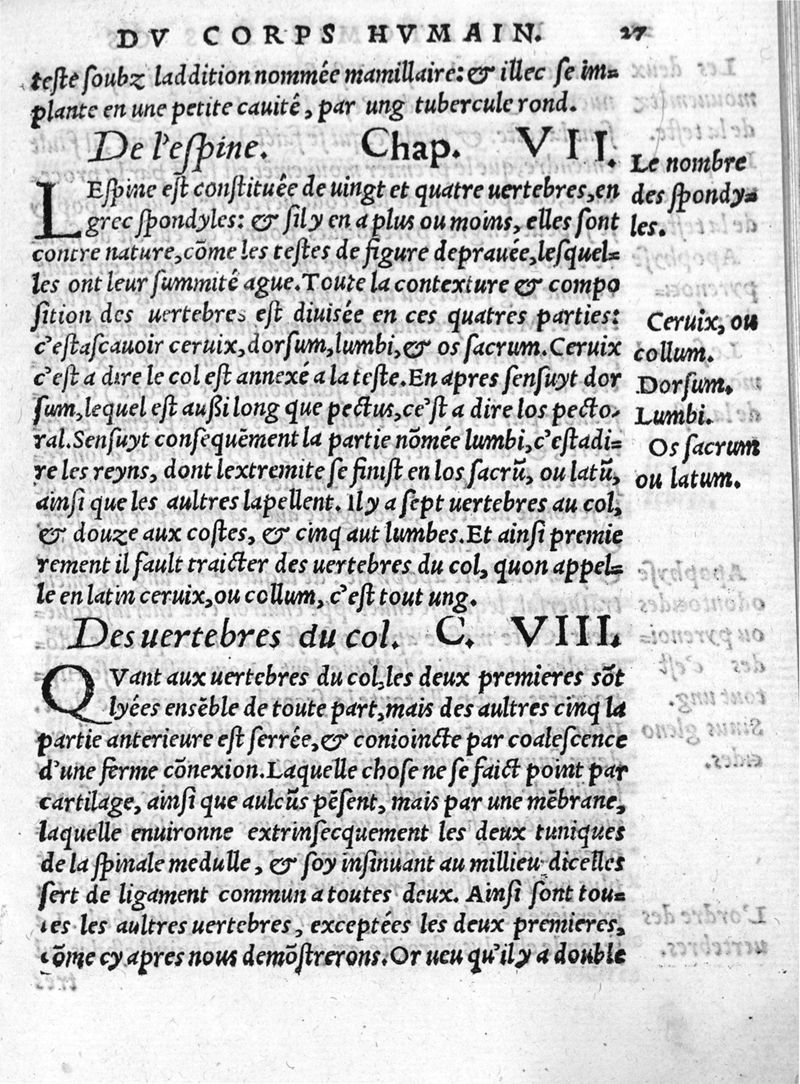 DV CORPS HVMAIN. 27
teste soubz laddition nommée mamillaire: & illec se im=
plante en une petite cauité, par ung tubercule rond.
De l'espine. Chap. VII.
LEspine est constituée de uingt et quatre uertebres, en
grec spondyles: & sil y en a plus ou moins, elles sont
contre nature, cõme les testes de figure deprauée, lesquel=
les ont leur summité ague. Toute la contexture & compo
sition des uertebres est diuisée en ces quatres parties:
c'estascauoir ceruix, dorsum, lumbi, & os sacrum. Ceruix
c'est a dire le col est annexé a la teste. En apres sensuyt dor
sum, lequel est außi long que pectus, ce'st a dire los pecto-
ral. Sensuyt consequẽment la partie nõmée lumbi, c'estadi=
re les reyns, dont lextremite se finist en los sacrũ, ou latũ,
ainsi que les aultres lapellent. Il y a sept uertebres au col,
& douze aux costes, & cinq aut lumbes. Et ainsi premie
rement il fault traicter des uertebres du col, quon appel=
le en latin ceruix, ou collum, c'est tout ung.
Le nombre
des spondy=
les.
Ceruix, ou
collum.
Dorsum.
Lumbi.
Os sacrum
ou latum.
Des uertebres du col. C. VIII.
QVant aux uertebres du col, les deux premieres sõt
lyées ensẽble de toute part, mais des aultres cinq la
partie anterieure est serrée, & conioincte par coalescence
d'une ferme cõnexion. Laquelle chose ne se faict point par
cartilage, ainsi que aulcũs pẽsent, mais par une mẽbrane,
laquelle enuironne extrinsecquement les deux tuniques
de la spinale medulle, & soy insinuant au millieu dicelles
sert de ligament commun a toutes deux. Ainsi sont tou=
tes les aultres uertebres, exceptées les deux premieres,
cõme cy apres nous demõstrerons. Or ueu qu'il y a double